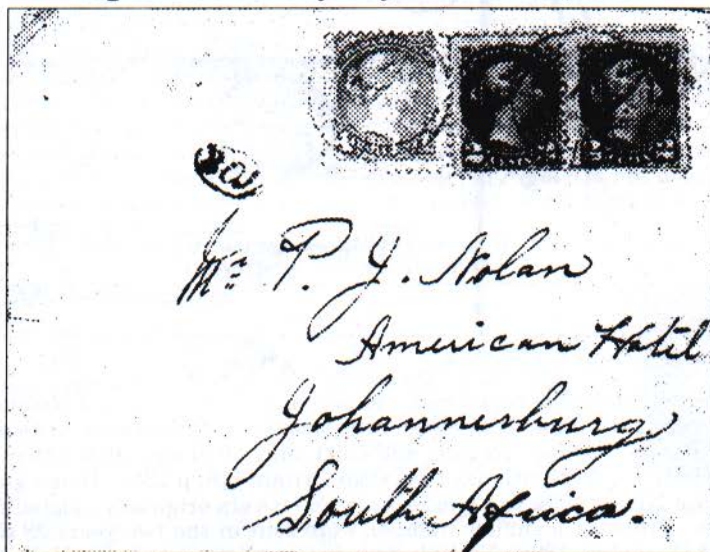 Mr. P. J. Nolan
American Hotel
Johannerburg
South Africa.